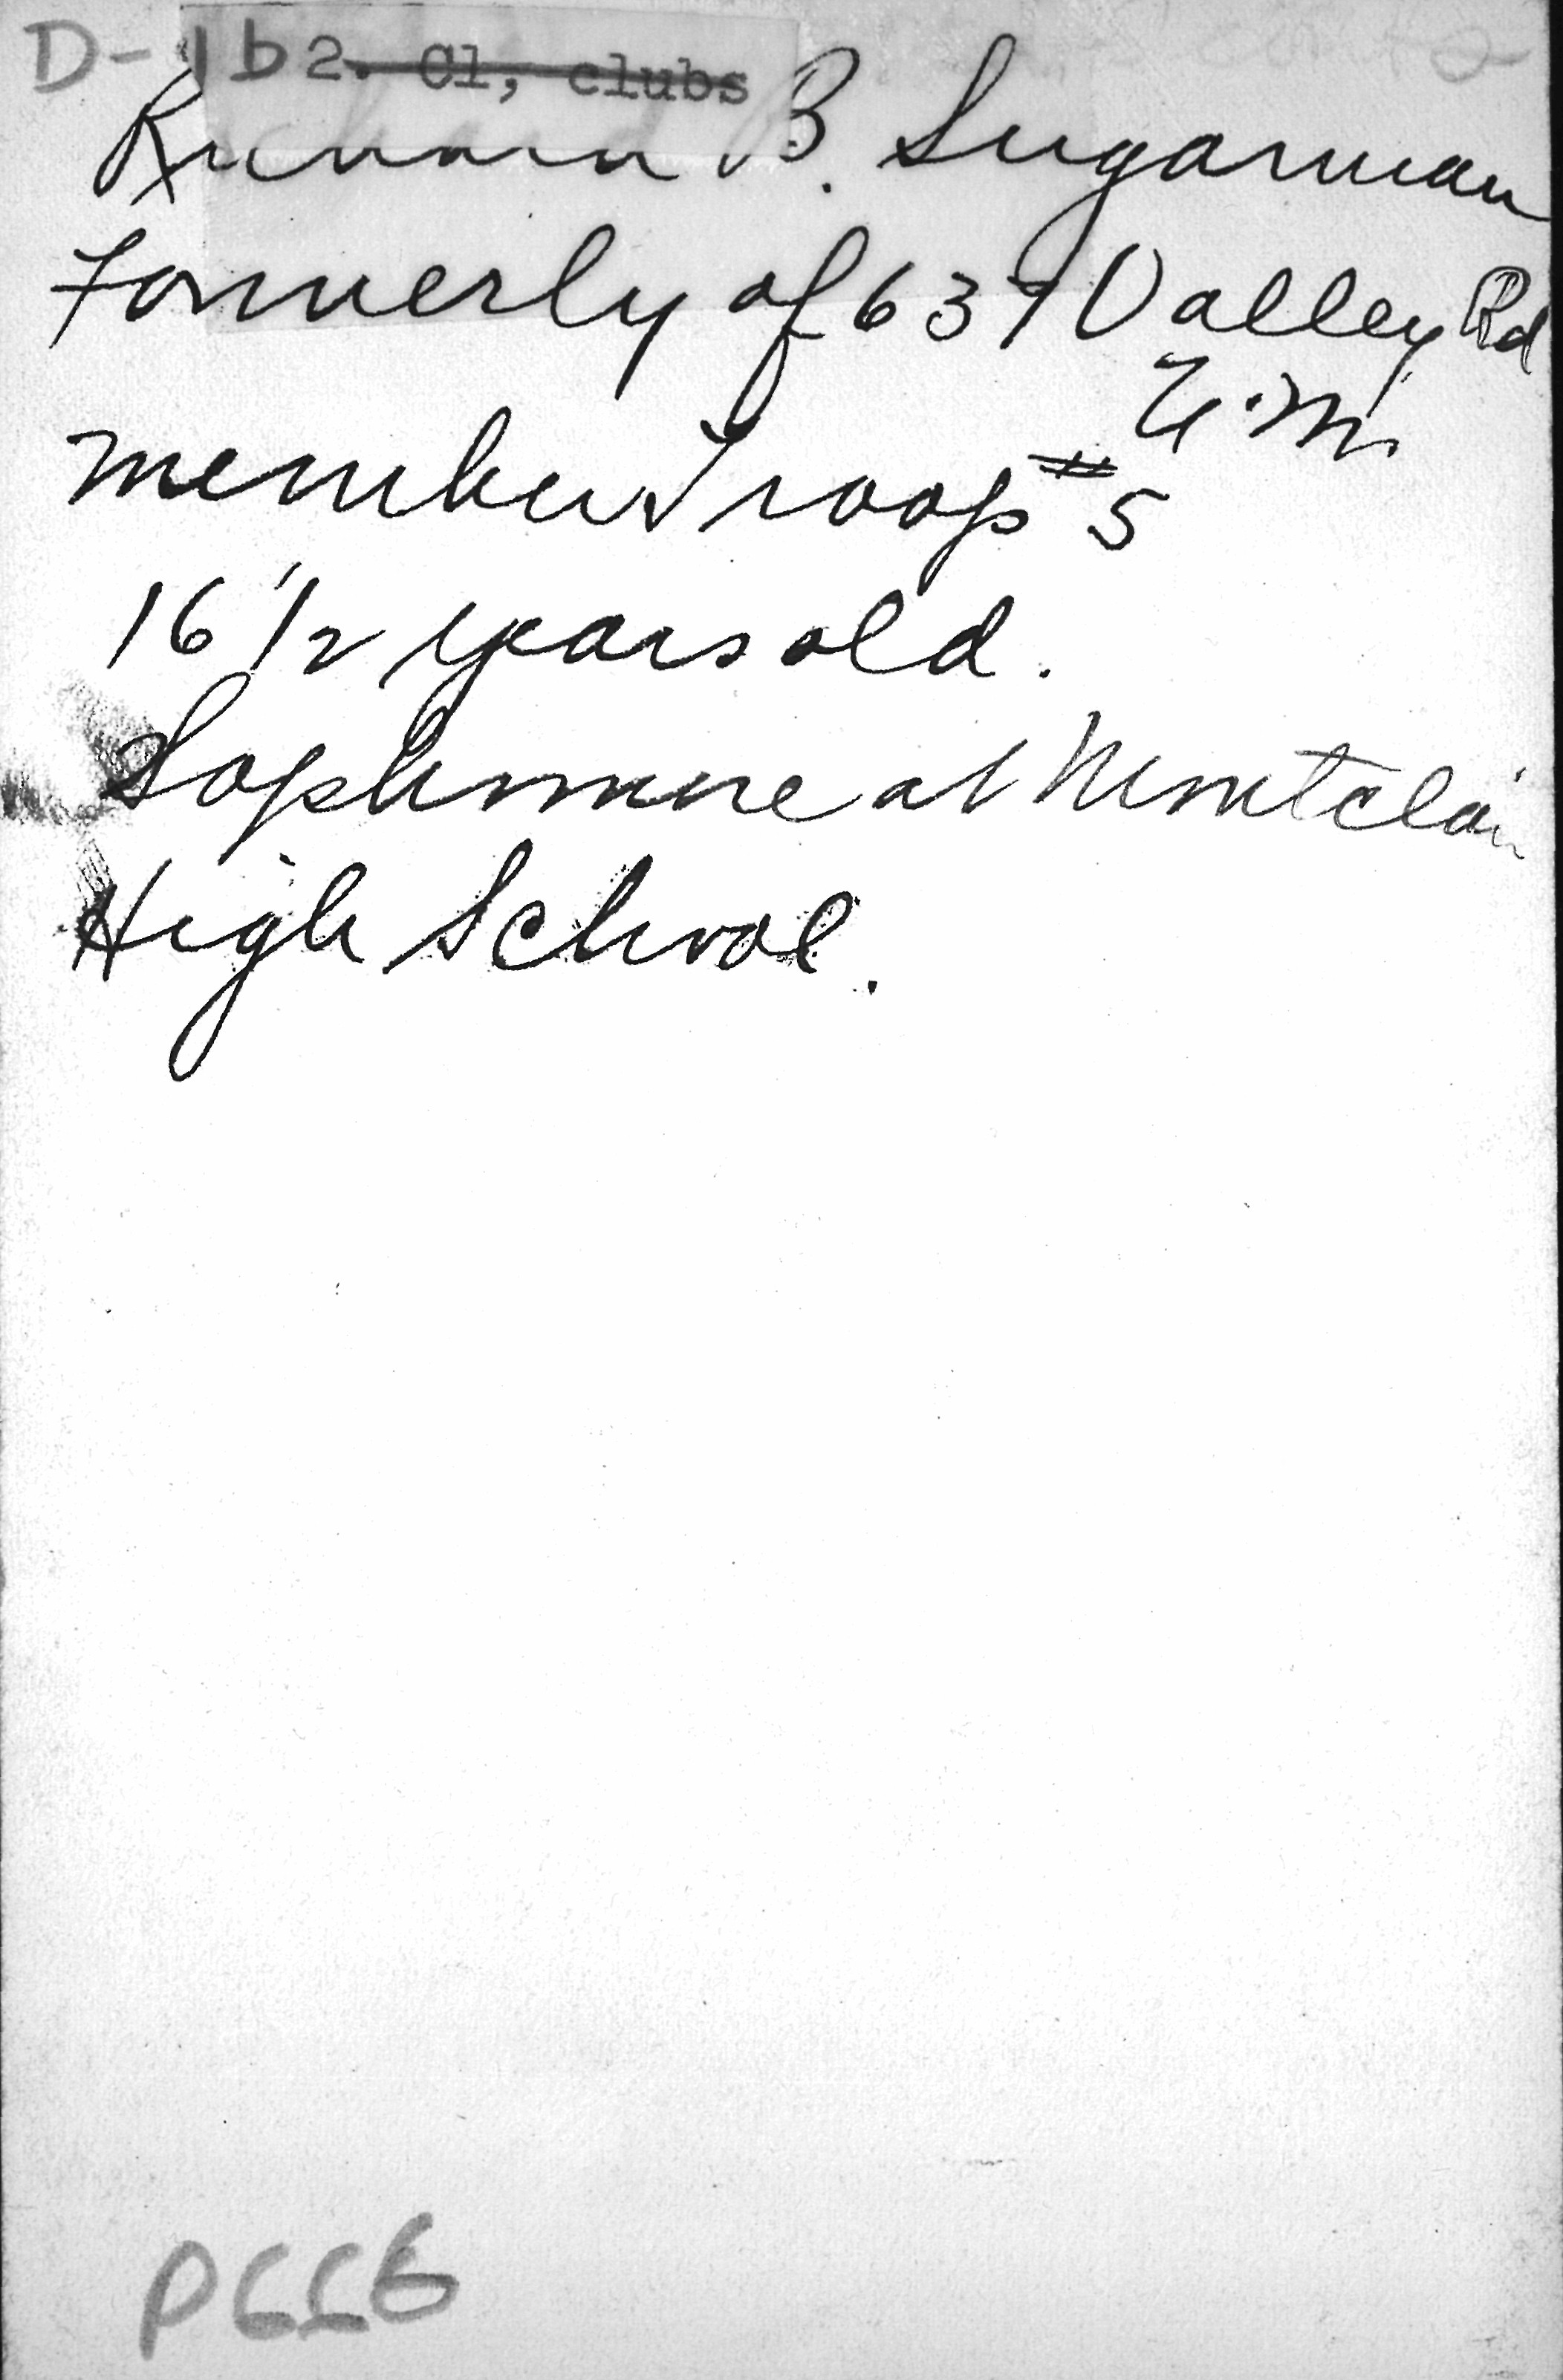 D-1b2. Cl, clubs
Richard B. Sugarman
Formerly of 637 Valley Rd
U.M.
member Troop #5
16 1/2 years old.
Sophomore at Montclair
High School.
P666